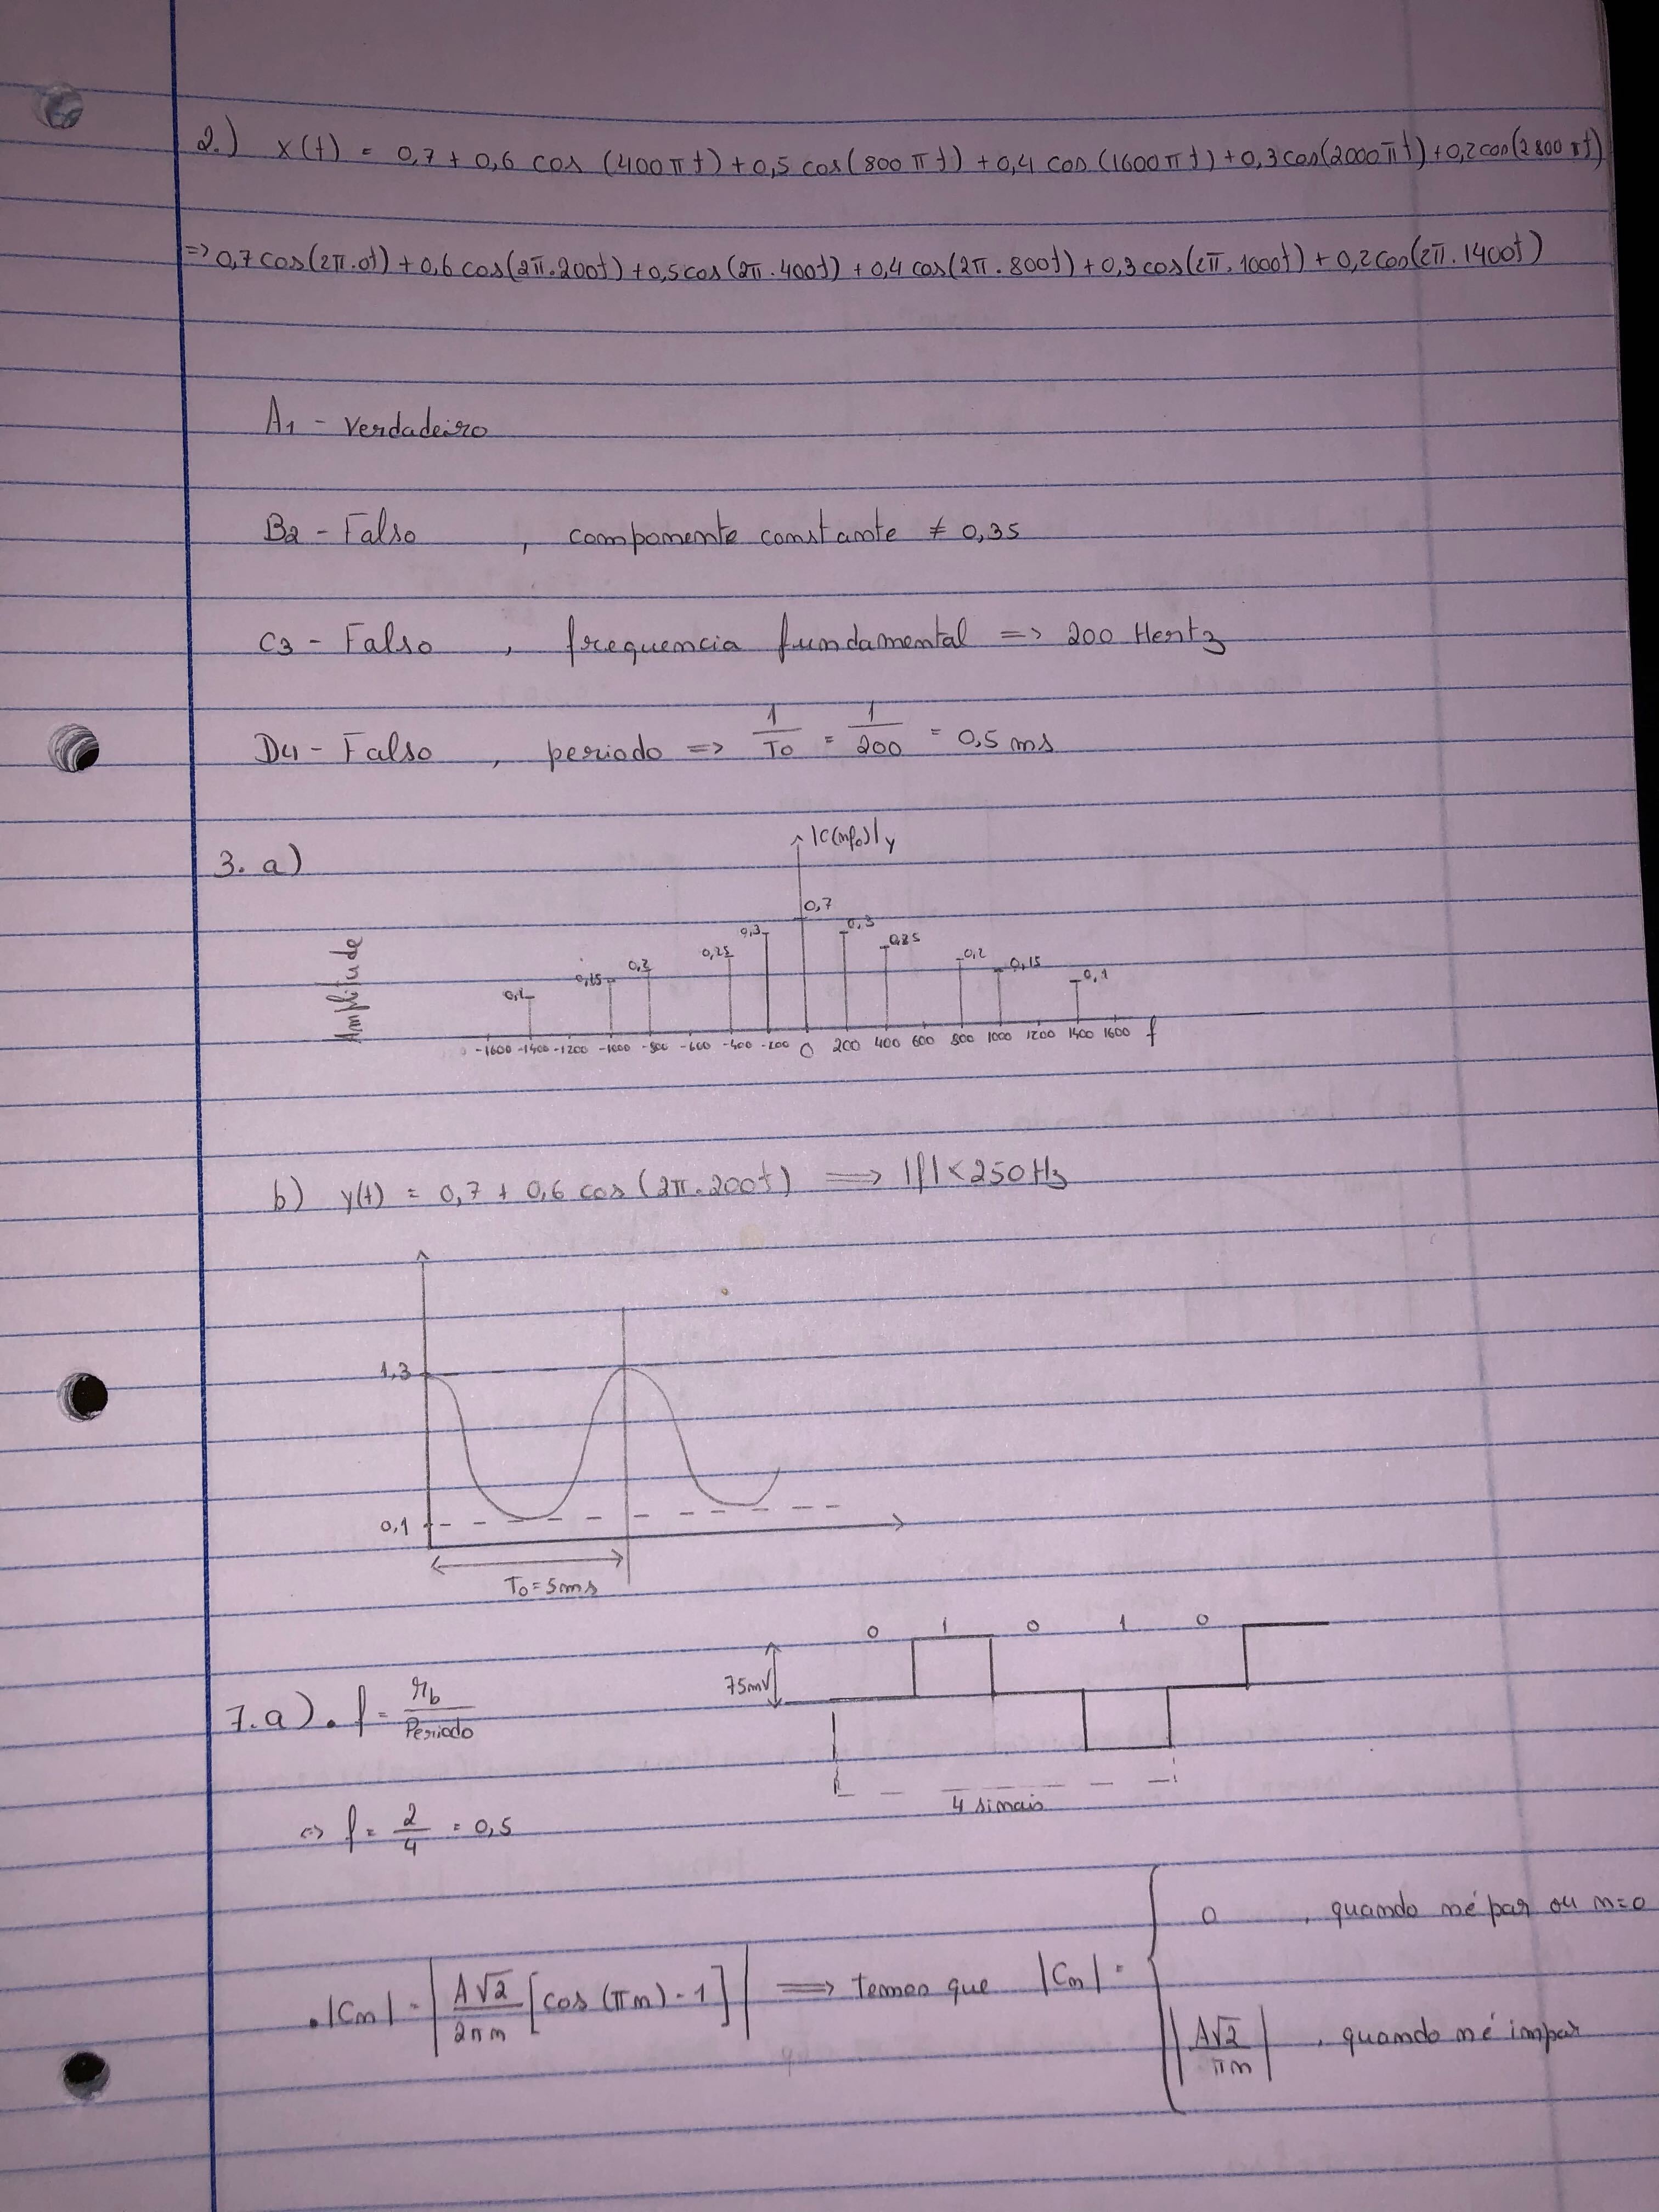 2.) x(t) = 0,7 + 0,6 cos (400πt) + 0,5 cos(800πt) + 0,4 cos (1600πt) + 0,3cos(2000πt) + 0,2cos(2800πt)
=> 0,7cos(2π.0t) + 0,6cos(2π.200t) + 0,5cos(2π.400t) + 0,4 cos(2π.800t) + 0,3cos(2π.1000t) + 0,2cos(2π.1400t)
A1 - Verdadeiro
B2 - Falso , componente constante ≠ 0,35
C3 - Falso , frequencia fundamental => 200 Hertz
D4 - Falso , periodo => 1/T0 = 1/200 = 0,5 ms
3. a)
|C(nf0)|y
Amplitude
0,1 0,15 0,2 0,25 0,3 0,7 0,3 0,25 0,2 0,15 0,1
-1600 -1400 -1200 -1000 -800 -600 -400 -200 0 200 400 600 800 1000 1200 1400 1600 f
b) y(t) = 0,7 + 0,6 cos (2π.200t) => |f|<250Hz
1,3
0,1
T0=5ms
0 1 0 1 0
75mV
7.a) . f = rb/Periodo
4 sinais
<=> f = 2/4 = 0,5
. |Cn| = |A√2/2πn [cos (πn) - 1]| => temos que |Cn| = { 0 , quando n é par ou n=0
|A√2/πn| , quando n é impar